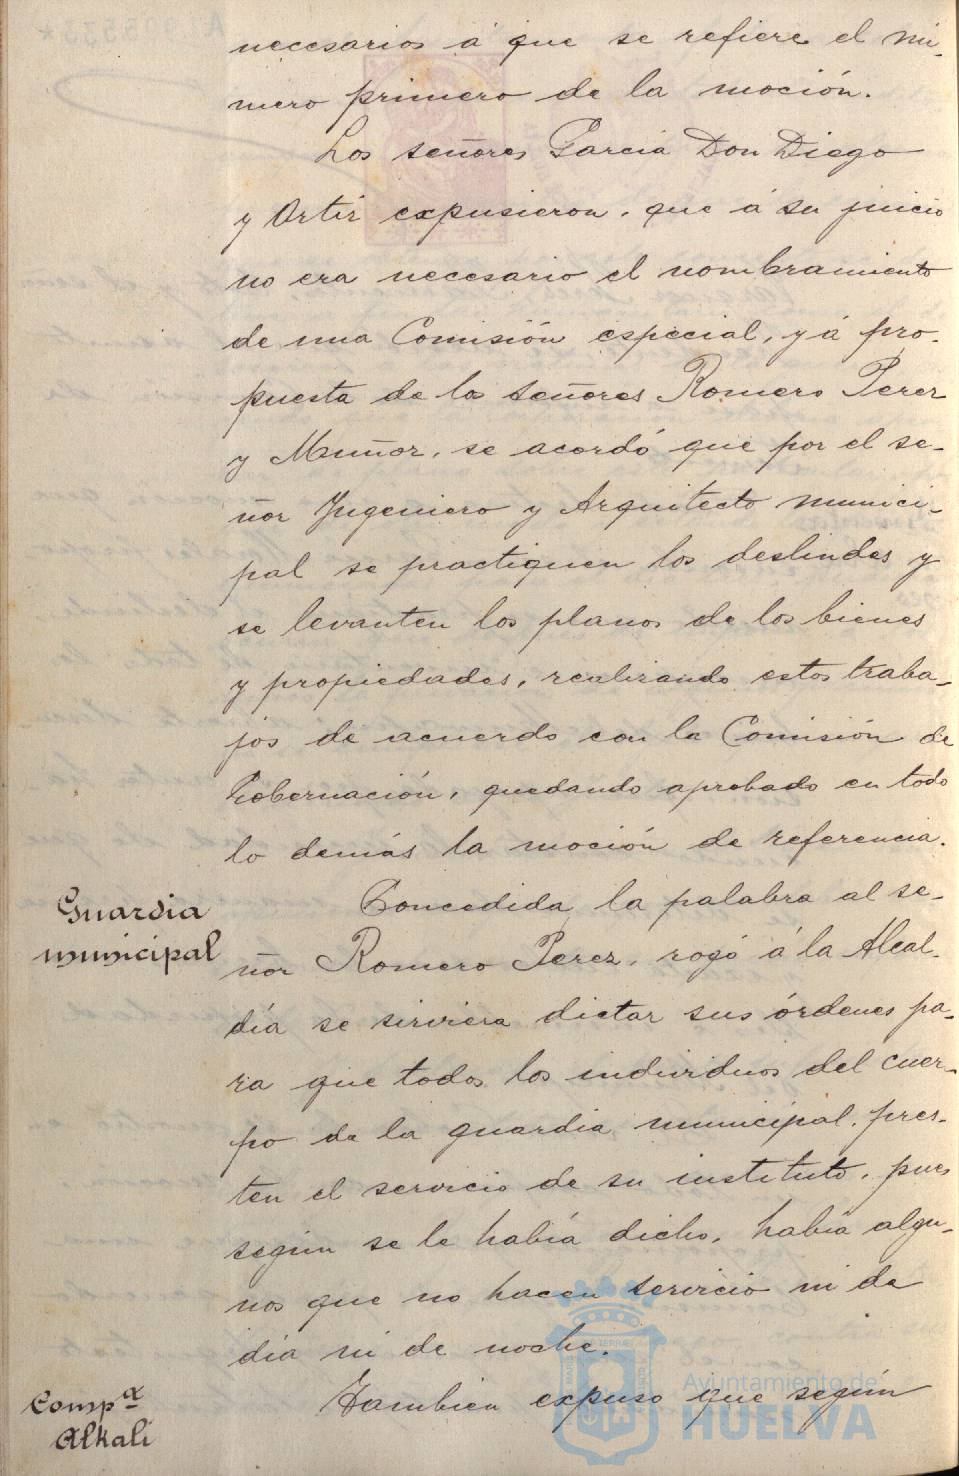 necesarios á que se refiere el nú-
mero primero de la moción.
Los señores García Don Diego
y Ortiz expusieron, que á su juicio
no era necesario el nombramiento
de una Comisión especial, y á pro-
puesta de los señores Romero Perez
y Muñoz, se acordó que por el se-
ñor Ingeniero y Arquitecto munici-
pal se practiquen los deslindes y
se levanten los planos de los bienes
y propiedades, realizando estos traba-
jos de acuerdo con la Comisión de
Gobernación, quedando aprobado en todo
lo demás la moción de referencia.
Guardia
municipal
Concedida la palabra al se-
ñor Romero Perez, rogó á la Alcal-
día se sirviera dictar sus órdenes pa-
ra que todos los individuos del cuer-
po de la guardia municipal, pres-
ten el servicio de su instituto, pues
según se le había dicho, había algu-
nos que no hacen servicio ni de
día ni de noche.
Compª
Alkali
Tambien expuso que según
Ayuntamiento de
HUELVA